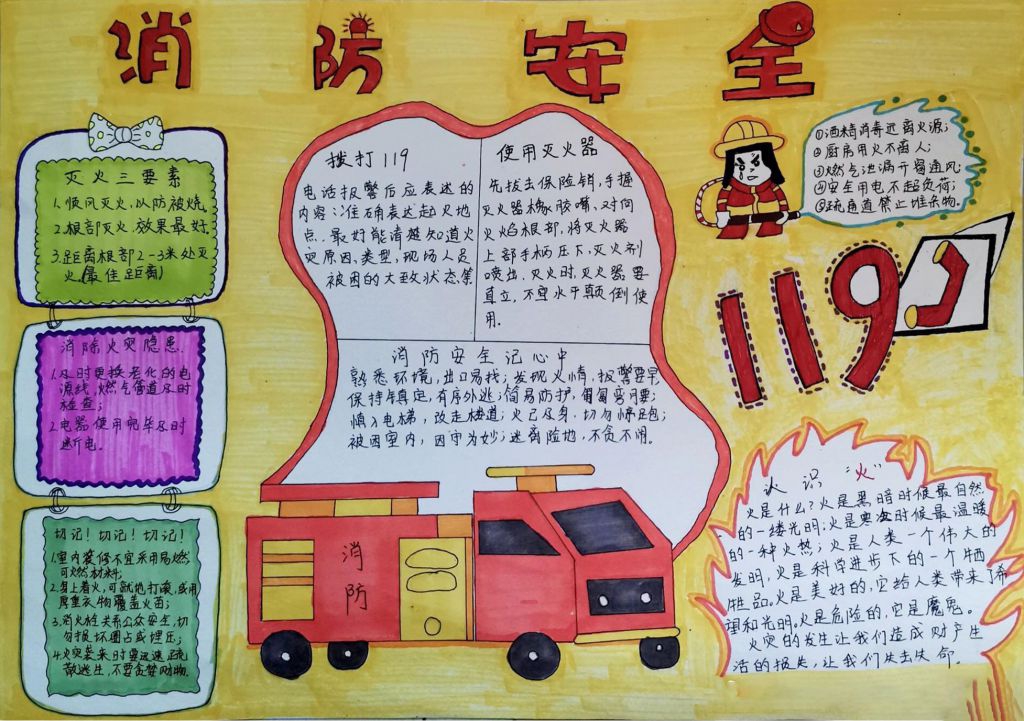 消防安全
灭火三要素
1.顺风灭火,以防被烧.
2.根部灭火,效果最好.
3.距离根部2-3米处灭
火.(最佳距离)
消除火灾隐患.
1.及时更换老化的电
源线,燃气管道及时
检查;
2.电器使用完毕及时
断电.
切记!切记!切记!
1.室内装修不宜采用易燃
可燃材料;
2.身上着火,可就地打滚,或用
厚重衣物覆盖火苗;
3.消火栓关系公众安全,切
勿损坏圈占或埋压;
4.火灾袭来时要迅速疏
散逃生,不要贪婪财物.
拨打119
电话报警后应表述的
内容:准确表达起火地
点.最好能清楚知道火
灾原因,类型,现场人员
被困的大致状态等
使用灭火器
先拔去保险销,手握
灭火器橡胶嘴,对向
火焰根部,将灭火器
上部手柄压下,灭火剂
喷出.灭火时,灭火器要
直立,不宜水平颠倒使
用.
消防安全记心中
熟悉环境,出口易找;发现火情,报警要早
保持镇定,有序外逃;简易防护,匍匐弯腰;
慎入电梯,改走楼道;火已及身,切勿惊跑;
被困室内,固守为妙;迷离险地,不贪不闹。
消
防
①酒精消毒远离火源;
②厨房用火不离人;
③燃气泄漏开窗通风;
④安全用电不超负荷;
⑤疏通道禁止堆杂物.
119
认识"火"
火是什么?火是黑暗时候最自然
的一缕光明;火是寒冷时候最温暖
的一种火热;火是人类一个伟大的
发明,火是科学进步下的一个牺
牲品.火是美好的,它给人类带来了希
望和光明.火是危险的,它是魔鬼.
火灾的发生让我们造成财产生
活的损失,让我们失去生命.